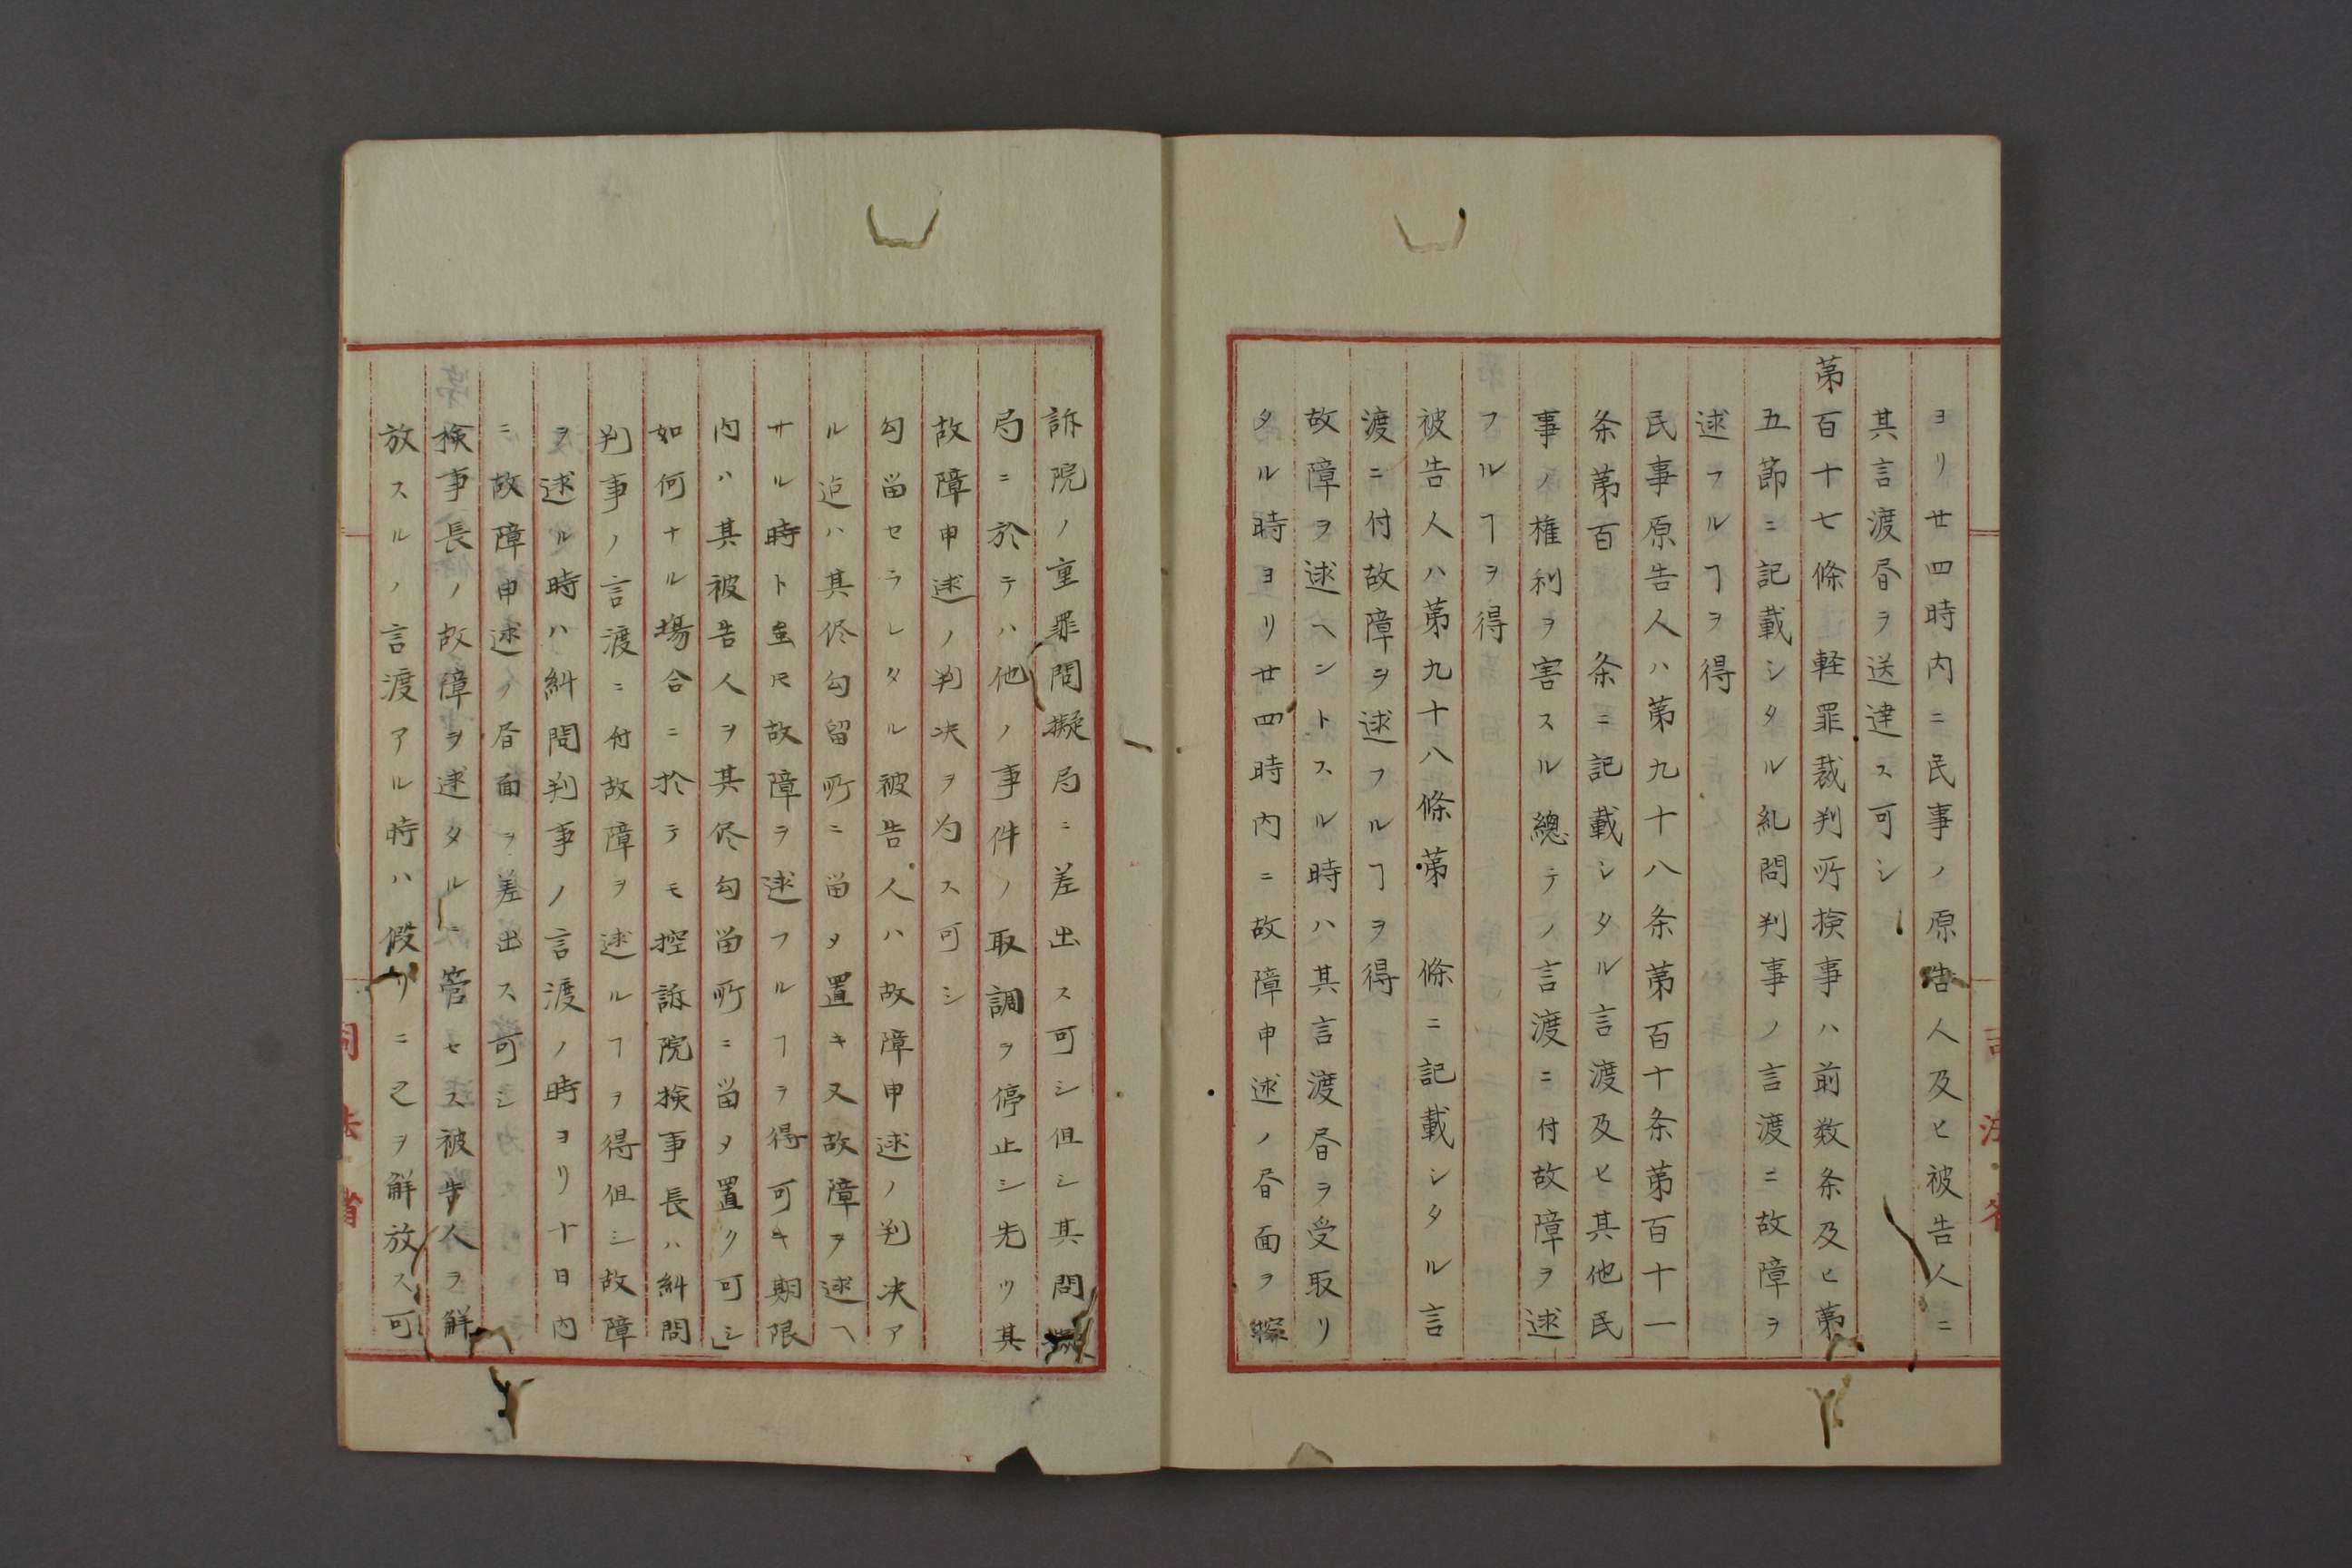 ヨリ廿四時内ニ民事ノ原告人及ヒ被告人ニ
其言渡昏ヲ送達ス可シ
第百十七條 軽罪裁判所検事ハ前数条及ヒ第
五節ニ記載シタル糺問判事ノ言渡ニ故障ヲ
述フルヿヲ得
民事原告人ハ第九十八条第百十条第百十一
条第百　条ニ記載シタル言渡及ヒ其他民
事ノ権利ヲ害スル總テノ言渡ニ付故障ヲ述
フルヿヲ得
被告人ハ第九十八條第　條ニ記載シタル言
渡ニ付故障ヲ述フルヿヲ得
故障ヲ述ヘントスル時ハ其言渡昏ヲ受取リ
タル時ヨリ廿四時内ニ故障申述ノ昏面ヲ
訴院ノ重罪問擬局ニ差出ス可シ但シ其問
局ニ於テハ他ノ事件ノ取調ヲ停止シ先ツ其
故障申述ノ判决ヲ为ス可シ
勾留セラレタル被告人ハ故障申述ノ判决ア
ル迠ハ其侭勾留所ニ留メ置キ又故障ヲ述ヘ
サル時ト虽𪜈故障ヲ述フルヿヲ得可キ期限
内ハ其被告人ヲ其侭勾留所ニ留メ置ク可シ」
如何ナル場合ニ於テモ控訴院検事長ハ糾問
判事ノ言渡ニ付故障ヲ述ルヿヲ得但シ故障
ヲ述ル時ハ糾問判事ノ言渡ノ時ヨリ十日内
ニ故障申述ノ昏面ヲ差出ス可シ
検事長ノ故障ヲ述タルニ管セス被告人ヲ解
放スルノ言渡アル時ハ假リニ之ヲ解放ス可
司法省
司法省